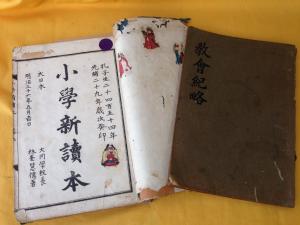 孔子生二千四百五十四年
光緒二十九年歲次癸卯
小學新讀本
大同學校長
大日本
明治三十六年五月吉日
教會紀略